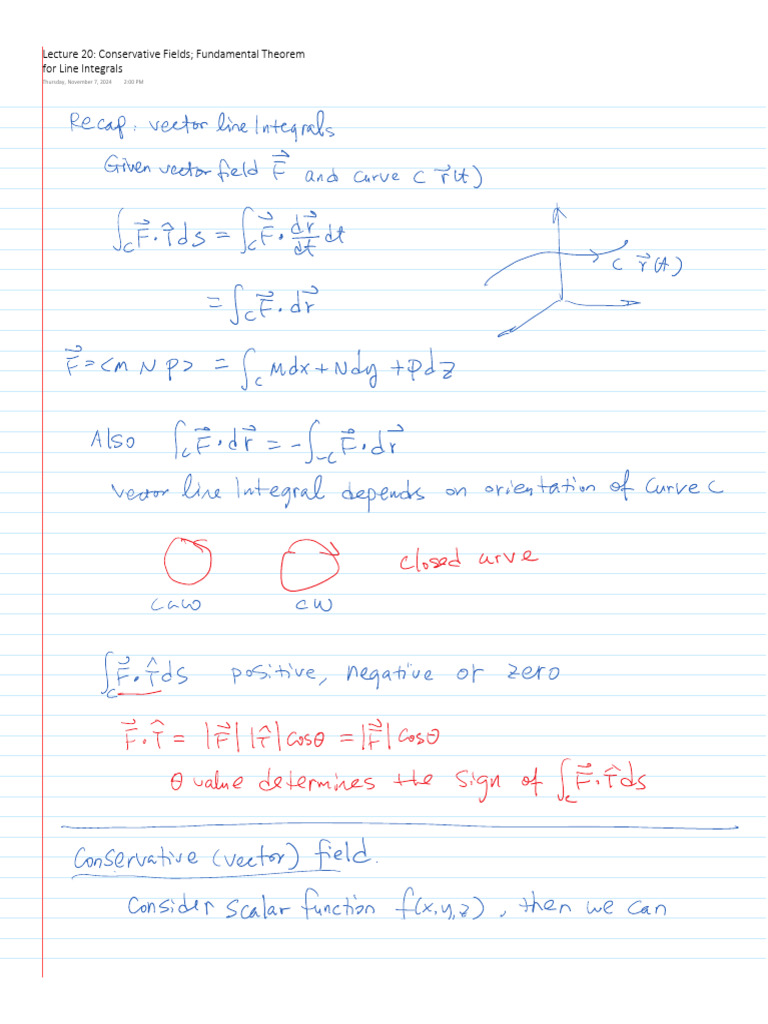 Lecture 20: Conservative Fields; Fundamental Theorem
for Line Integrals
Thursday, November 7, 2024 2:00 PM
Recap: vector line Integrals
Given vector field F⃗ and curve C r⃗(t)
∫_C F⃗·T̂ds = ∫_C F⃗·dr⃗/dt dt
C r⃗(t)
= ∫_C F⃗·dr⃗
F⃗ = <M N P> = ∫_C Mdx + Ndy + Pdz
Also ∫_C F⃗·dr⃗ = -∫_-C F⃗·dr⃗
Vector line Integral depends on orientation of Curve C
closed urve
CCW CW
∫_C F⃗·T̂ds positive, negative or zero
F⃗·T̂ = |F⃗||T̂|cosθ = |F⃗|cosθ
θ value determines the sign of ∫_C F⃗·T̂ds
Conservative (vector) field.
Consider scalar function f(x,y,z), then we can